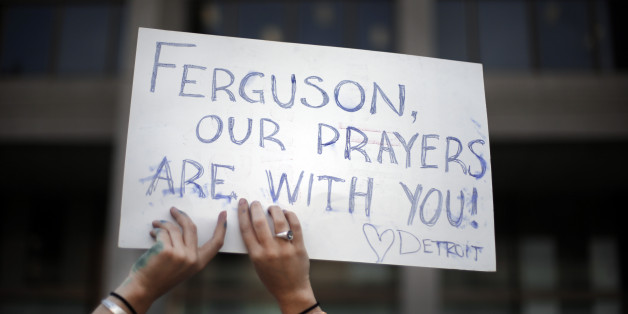 FERGUSON,
OUR PRAYERS
ARE WITH YOU!
♡ DETROIT